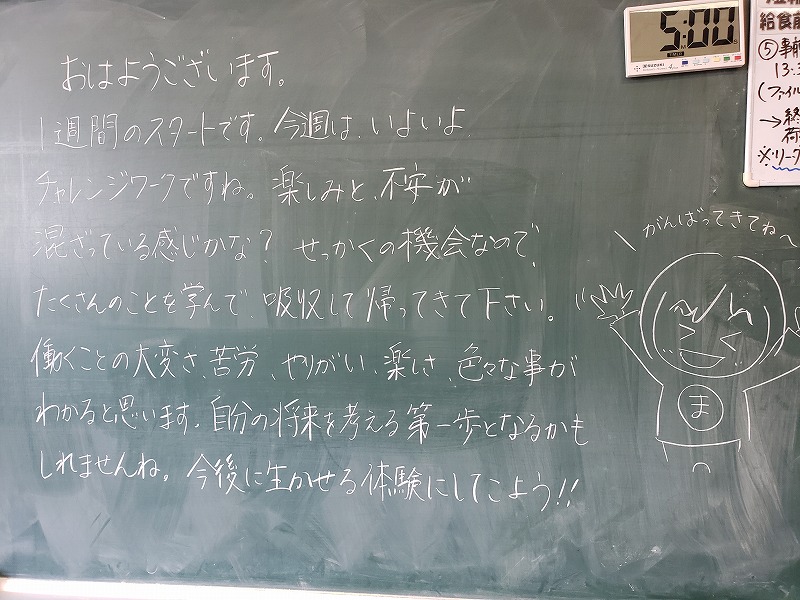 おはようございます。
1週間のスタートです。今週は、いよいよ
チャレンジワークですね。楽しみと、不安が
混ざっている感じかな？せっかくの機会なので、
たくさんのことを学んで、吸収して帰ってきて下さい。
働くことの大変さ、苦労、やりがい、楽しさ、色々な事が
わかると思います。自分の将来を考える第一歩となるかも
しれませんね。今後に生かせる体験にしてこよう!!
がんばってきてね〜
ま
5:00
SUZUKI
給食
⑤事
13:3
(ファイル
→終
荷
※リーク